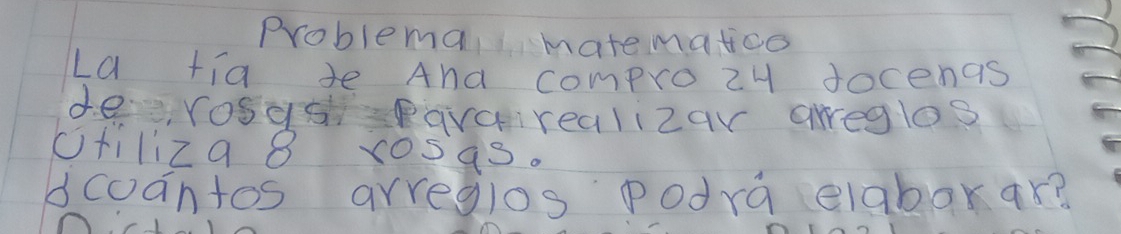 Problema matematico
La tía de Ana compro 24 docenas
de rosas. Para realizar arreglos
Utiliza 8 rosas.
¿cuántos arreglos podrá elaborar?